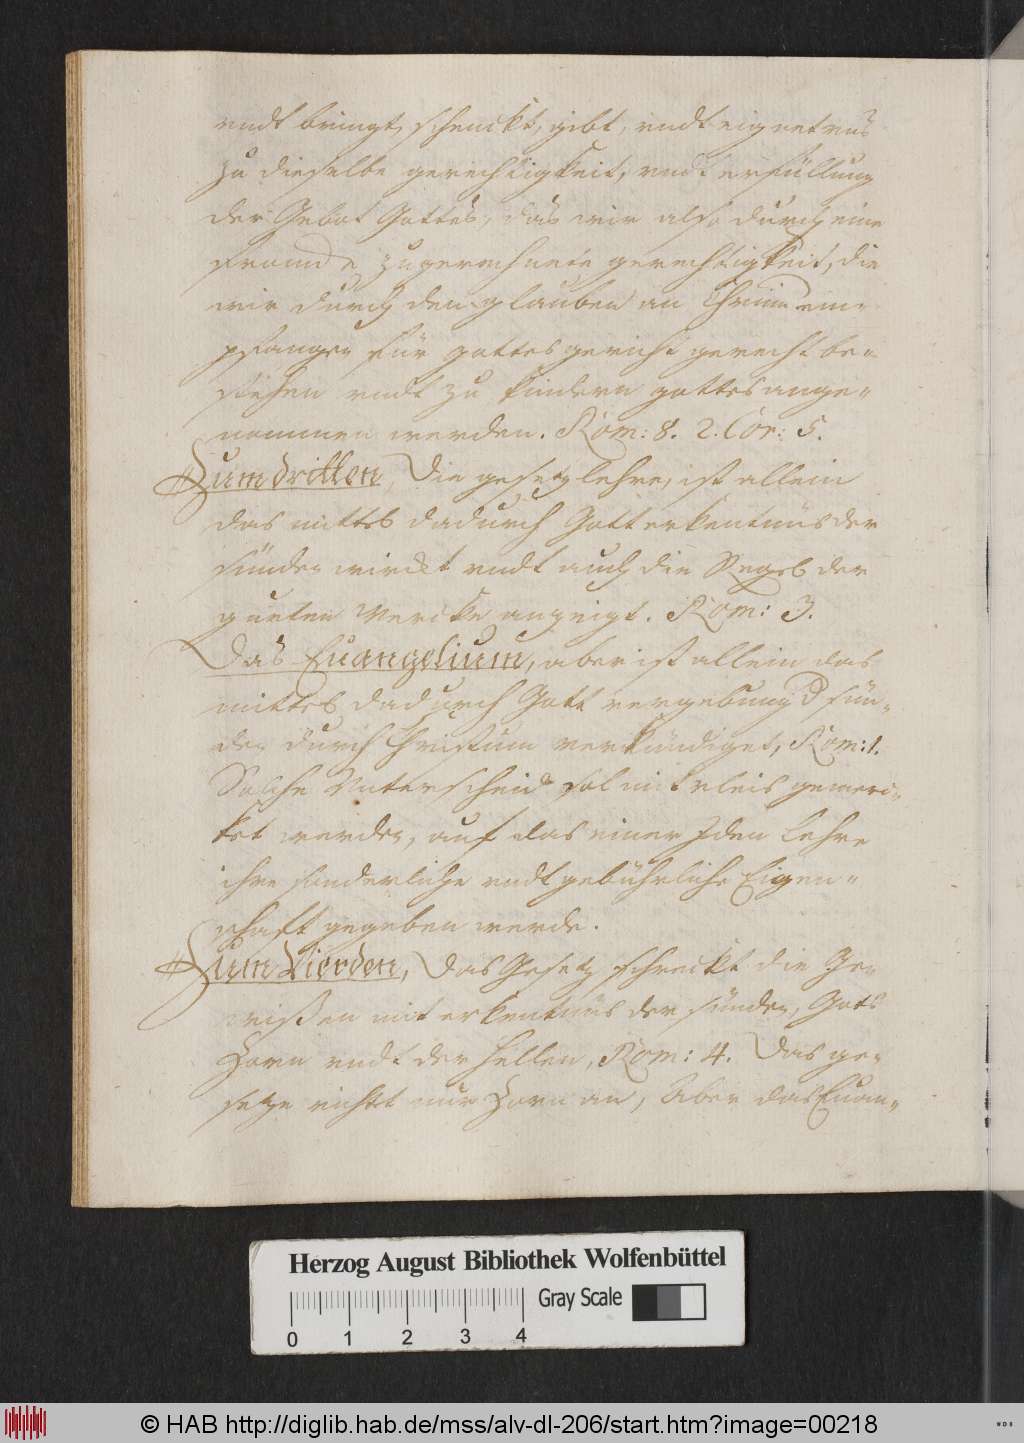 undt bringt, schenckt, gibt, undt eignet uns
zu dieselbe gerechtigkeit, undt erfüllung
der Gebot Gottes, das wir also durch eine
frömde zugerechnete gerechtigkeit, die
wir durch den glauben an Christum em-
pfangen für gottes gericht gerecht be-
stehen undt zu kindern gottes ange-
nommen werden. Rom: 8. 2. Cor: 5.
Zum dritten, Die gesetzlehre, ist allein
das mittel dadurch Gott erkentnüs der
sünden wirckt undt auch die Regel der
gueten Wercke anzeigt. Rom: 3.
Das Euangelium, aber ist allein das
mittel dadurch Gott vergebung d sün-
den durch Christum verkündiget, Rom: 1.
Solche Unterscheid sol mit vleis gemerc-
ket werden, auf das einer Jden Lehre
ihre sonderliche undt gebührliche Eigen-
schaft gegeben werde.
Zum Vierden, Das Gesetz schreckt die Ge-
wißen mit erkentnüs der sünden, Gots
Zorn undt der hellen, Rom: 4. Das ge-
setze richtet nur Zorn an, Aber das Euan-
Herzog August Bibliothek Wolfenbüttel
Gray Scale
0 1 2 3 4
© HAB http://diglib.hab.de/mss/alv-dl-206/start.htm?image=00218